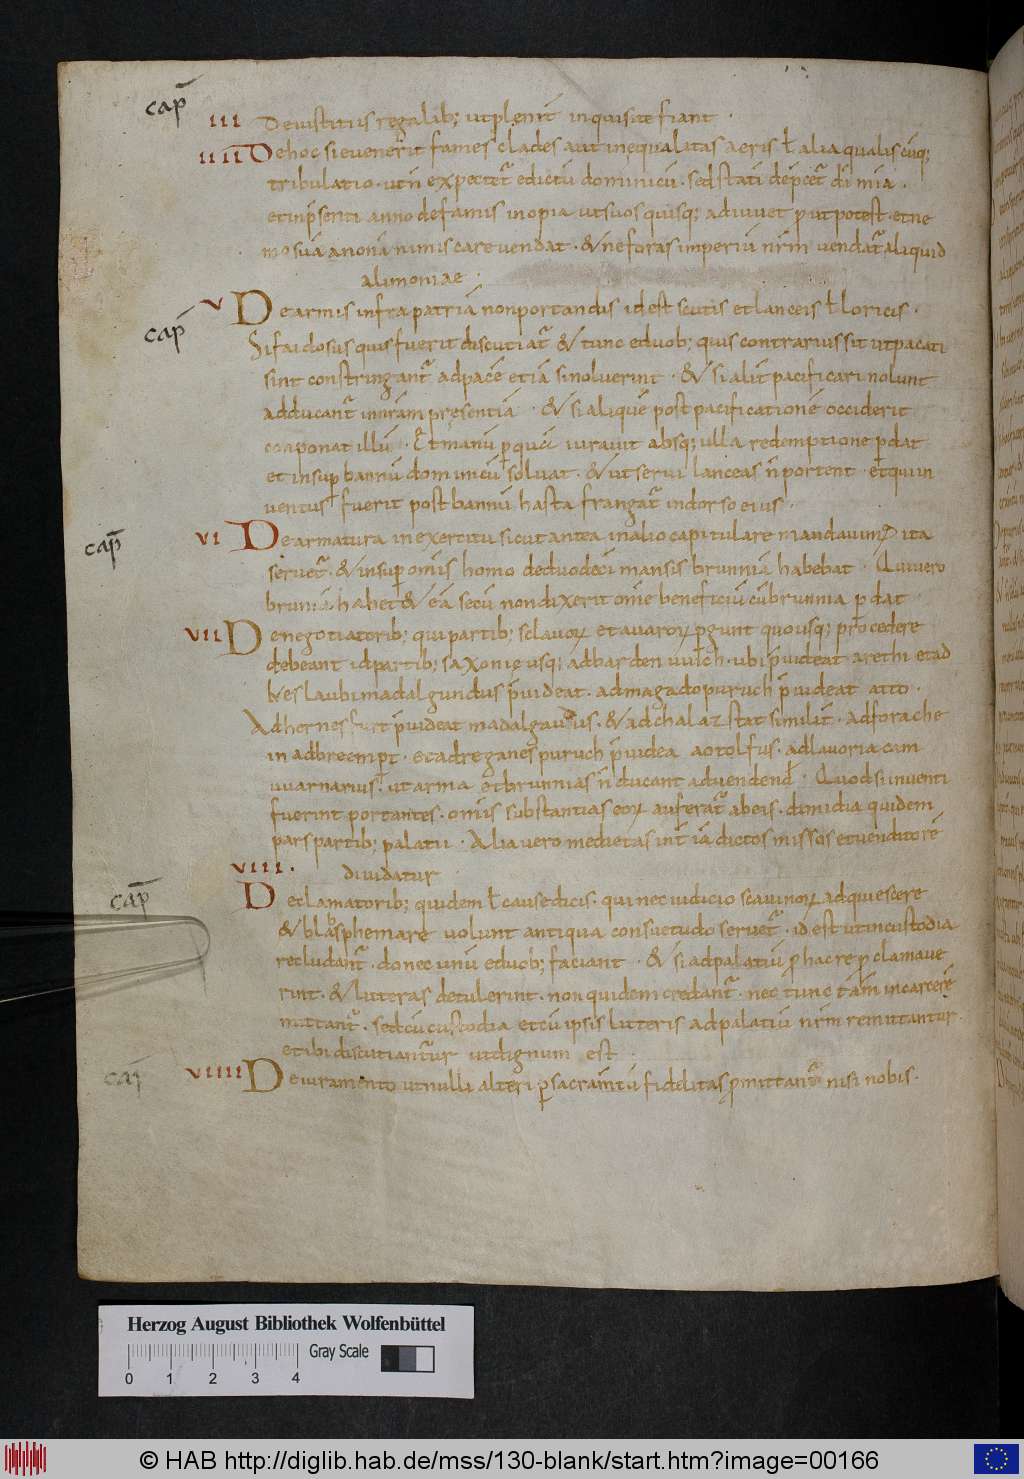 cap̄
III De iustitiis regalib; ut pleniť inquisite fiant .
IIII De hoc si evenerit fames clades aut inequalitas aeris ł alia qualiscūq;
tribulatio . ut ñ expectet̃ edictū dominicū . sed stati dep̄cet̃ dī mīa .
et in p̄senti anno de famis inopia ut suos quisq; adiuvet prout potest . et ne
 suā anonā nimis care vendat . & ne foras imperiū nr̄m vendat̃ aliquid
alimoniae .
cap̄
V De armis infra patriā non portandis id est scutis et lanceis ł loricis .
Si faidosus quis fuerit discutiat̃ & tunc eduob; quis contrarius sit ut pacati
sint constringant̃ ad pacē etiā si noluerint . & si aliť pacificari nolunt
adducant̃ in nr̄am presentiā . & si aliquē post pacificationē occiderit
conponat illū . & manū p̱ quā iuravit absq; ulla redemptione p̱dat
et insup̱ bannū dominicū solvat . & ut servi lanceas ñ portent . et qui in
ventus fuerit post bannū hasta frangat̃ in dorso eius .
cap̄
VI De armatura in exercitu sicut antea in alio capitulare mandavim; ita
servet̃ . & insup̱ om̄is homo de duodeci mansis brunniā habebat . Qui vero
bruniā habet & eā secū non dixerit om̄e beneficiū cū brunnia p̱dat
VII De negotiatorib; qui partib; sclavoꝝ et avaroꝝ p̱gunt quousq; procedere
debeant id partib; saxonię usq; ad bardenuuich . ubi p̄videat arethi et ad
 laubi madalgundus p̄videat . ad magadopuruch p̄videat atto .
Ad hernesfurt p̄videat madalgaudus . & ad chalazstat similiť . ad forache
in ad brecmp̱t . et ad reganespuruch p̄videa aotolfus . ad lavoriacam
uuarnarius . ut arma et brunnias ñ ducant ad vendend̄ . Quod si inventi
fuerint portantes . om̄is substantias eoꝝ auferat̃ ab eis . dimidia quidem
pars partib; palatii . Alia vero medietas inť iā dictos missos et venditorē
dividatur
VIII.
cap̄
De clamatorib; quidem ł causedicis . qui nec iudicio scavinoꝝ adquiescere
& blasphemare volunt antiqua consvetudo servet̃ . id est ut in custodia
recludant̃ . donec unū eduob; faciant . & si ad palatiū pro hac re proclamave
rint . & litteras detulerint . non quidem credant̃ . nec tunc tam̄ in carcerē
mittant̃ . sed cū custodia et cū ipsis litteris ad palatiū nr̄m remittantur .
et ibi discutiantur ut dignum est .
cap̄
VIIII De iuramento ut nulli alteri p̱ sacram̄tū fidelitas promittant̃ nisi nobis .
Herzog August Bibliothek Wolfenbüttel
Gray Scale
0 1 2 3 4
© HAB http://diglib.hab.de/mss/130-blank/start.htm?image=00166